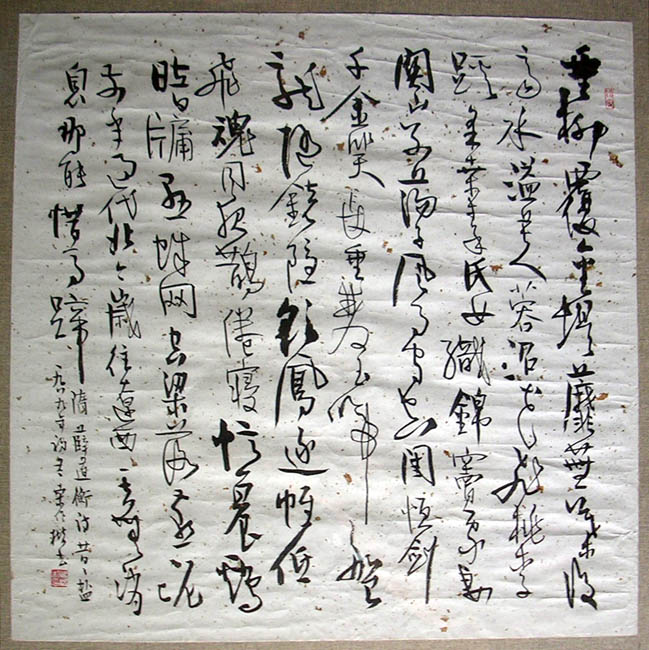 垂柳覆金堤蘼蕪葉復
齊水溢芙蓉沼花飛桃李
蹊采桑秦氏女織錦竇家妻
關山別蕩子風月守空閨恒斂
千金笑長垂雙玉啼盤
龍隨鏡隱彩鳳逐帷低
飛魂同夜鵲倦寢憶晨鷄
暗牖懸蛛网空梁落燕泥
前年過代北今歲往遼西一去無消
息那能惜馬蹄
隋薛道衡詩昔昔盐
一九八九年